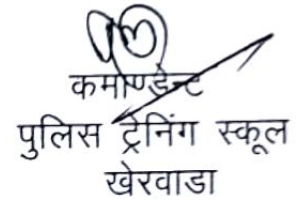 कमाण्डेन्ट
पुलिस ट्रेनिंग स्कूल
खेरवाडा